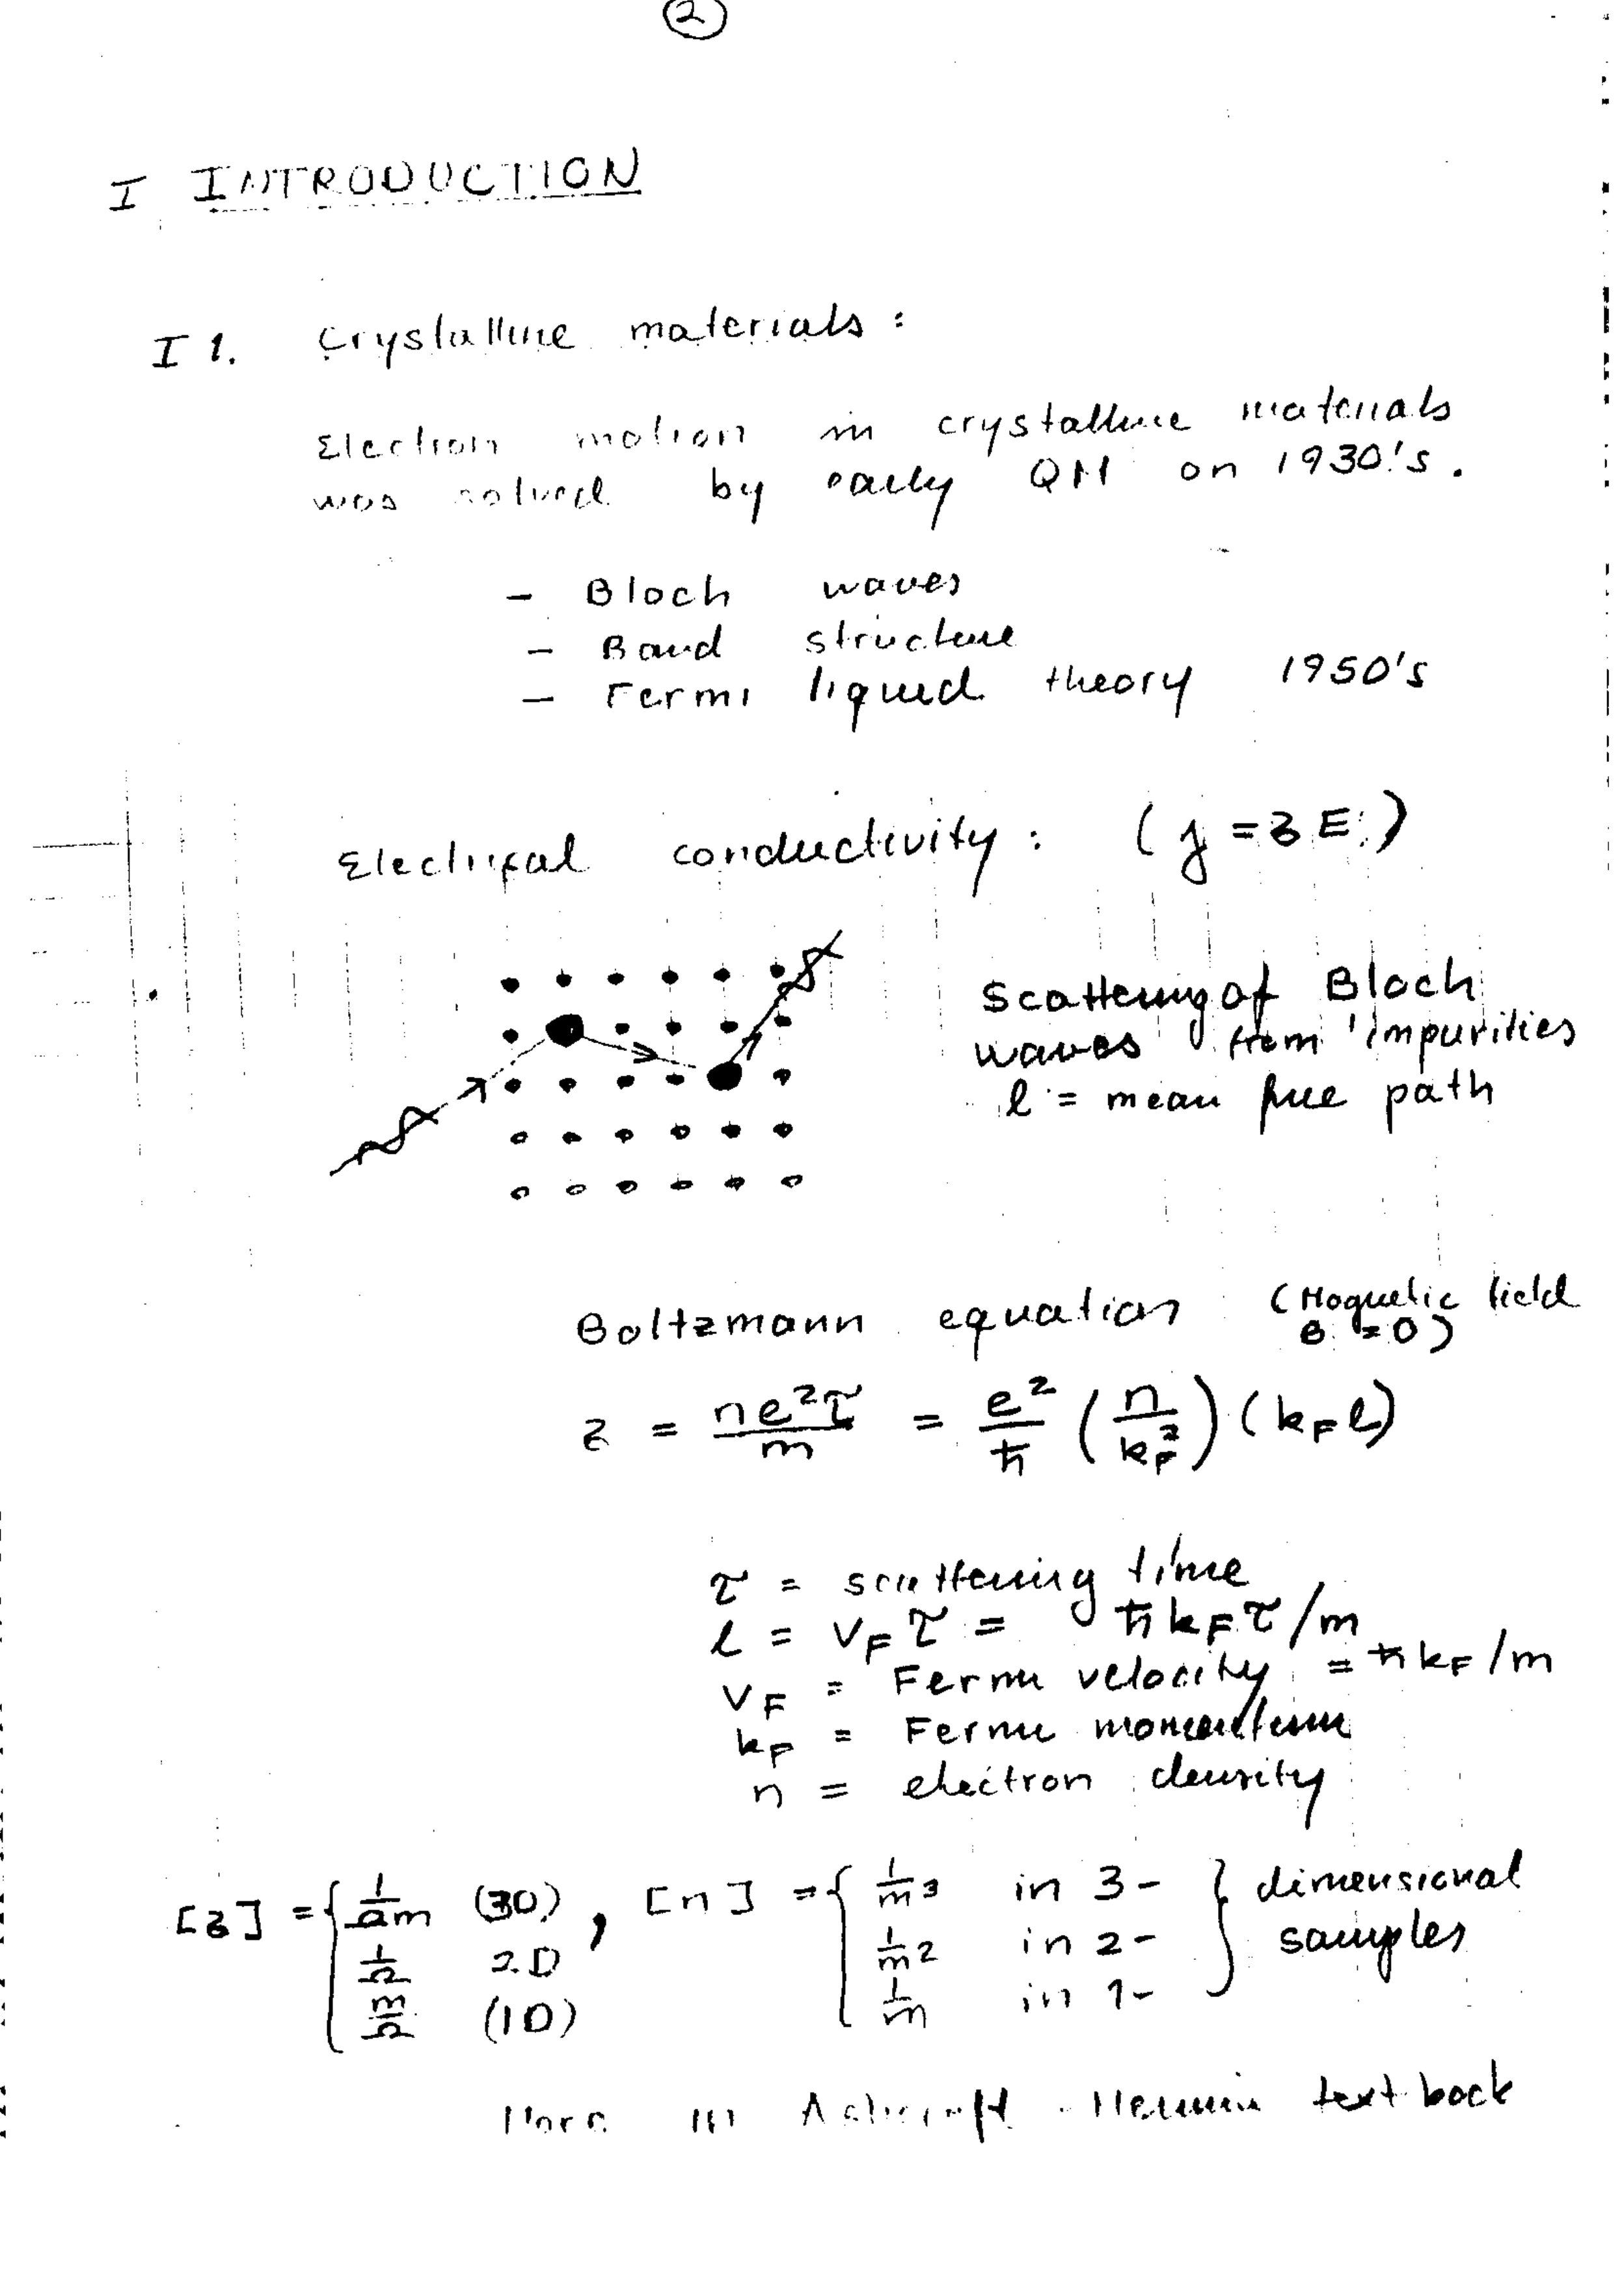 2
I INTRODUCTION
I 1. Crystalline materials :
Electron motion in crystalline materials
was solved by early QM on 1930's.
– Bloch waves
– Band structure
– Fermi liquid theory 1950's
Electrical conductivity : ( j = σ E )
Scattering of Bloch
waves from impurities
l = mean free path
Boltzmann equation (Magnetic field
B = 0)
σ = ne²τ/m = e²/ħ (n/k_F²) (k_F l)
τ = scattering time
l = v_F τ = ħ k_F τ/m
v_F = Fermi velocity = ħ k_F/m
k_F = Fermi momentum
n = electron density
[σ] = { 1/Ωm (3D) , [n] = { 1/m³ in 3- } dimensional
1/Ω 2D 1/m² in 2- samples
m/Ω (1D) 1/m in 1-
More in Ashcroft - Mermin textbook